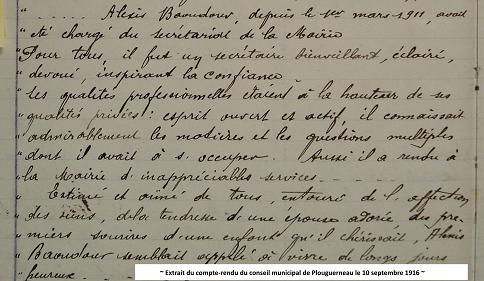 " ........ Alexis Baoudour, depuis le 1er mars 1911, avait
" été chargé du secrétariat de la Mairie
" Pour tous, il fut un secrétaire bienveillant, éclairé,
" dévoué, inspirant la confiance.
" Ses qualités professionnelles étaient à la hauteur de ses
" qualités privées : esprit ouvert et actif, il connaissait
" admirablement les matières et les questions multiples
" dont il avait à s'occuper. Aussi il a rendu à
" la Mairie d'inappréciables services
" Estimé et aimé de tous, entouré de l'affection
" des siens, de la tendresse d'une épouse adorée des pre
" miers sourires d'une enfant qu'il chérissait, Alexis
" Baoudour semblait appelé à vivre de longs jours
" heureux
~ Extrait du compte-rendu du conseil municipal de Plouguerneau le 10 septembre 1916 ~